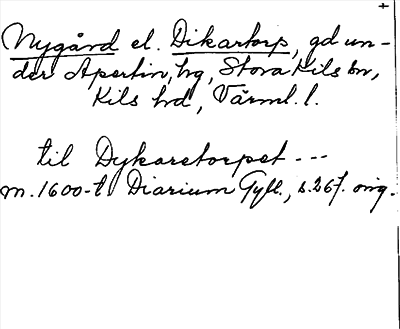 Nygård el. Dikartorp, gd un-
der Apertin, hg, Stora Kils sn,
Kils hd, Värml. l.
til Dykaretorpet ---
m. 1600-t. Diarium Gyll., s. 267. orig.